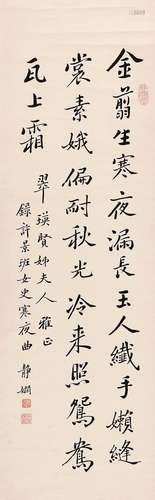 金翦生寒夜漏長玉人纖手嬾縫
裳素娥偏耐秋光冷来照鴛鴦
瓦上霜
翠瑛賢姊夫人雅正
錄許景班女史寒夜曲 靜嫻